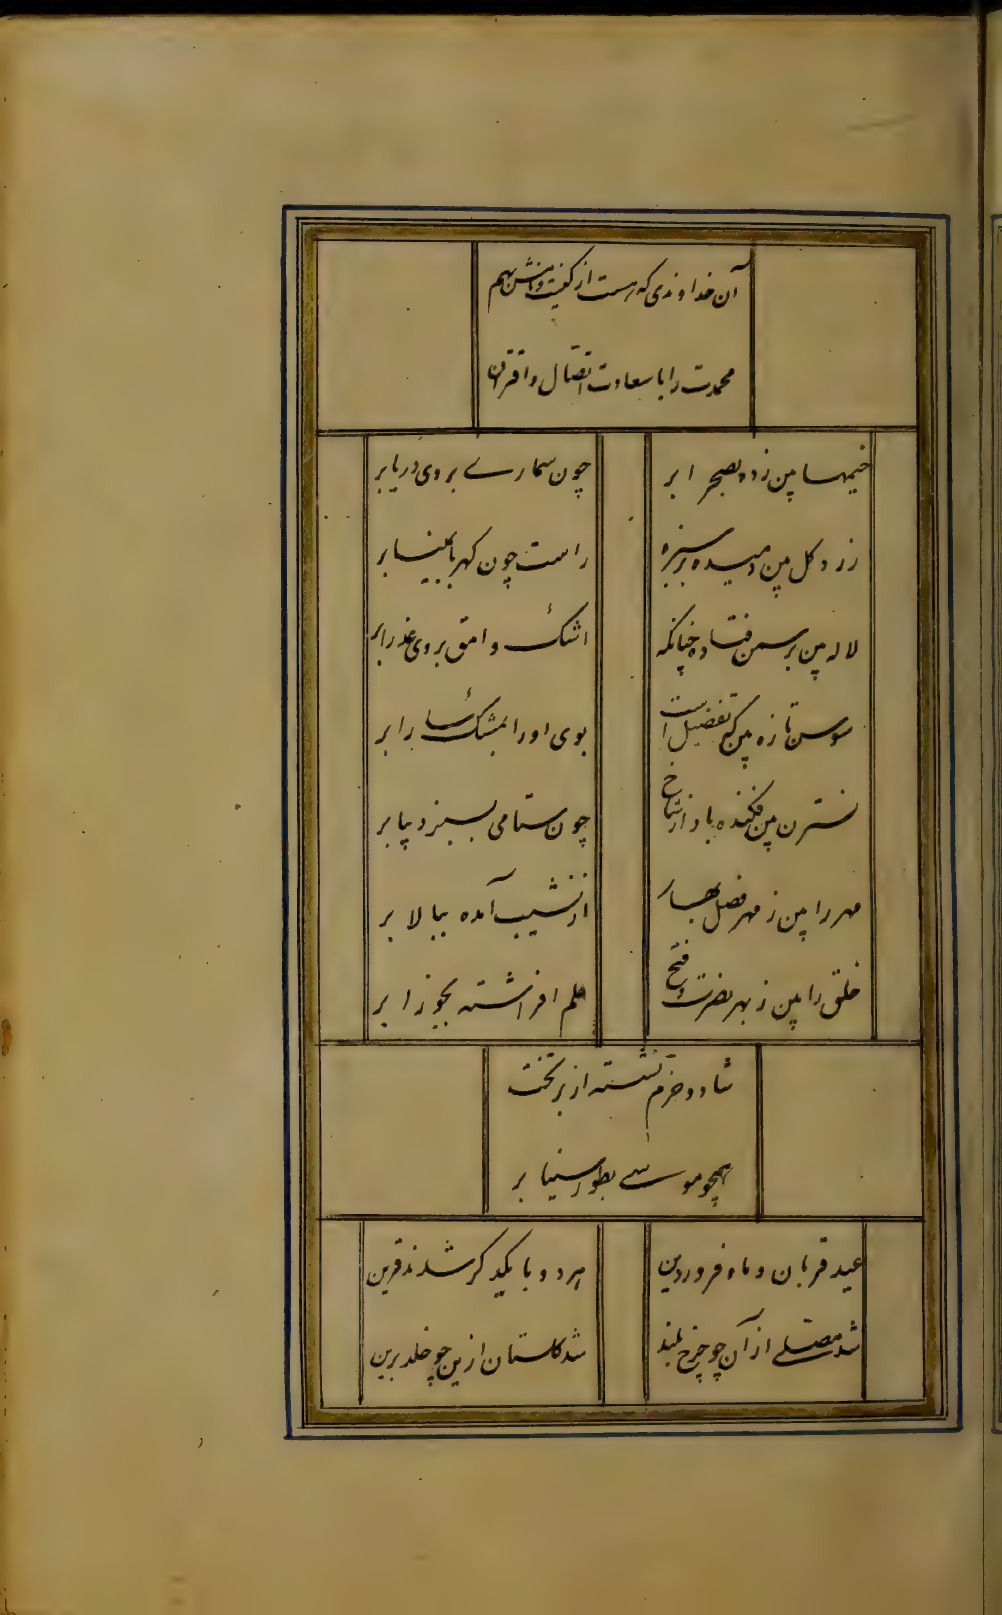 آن خداوندی که هست از کنیت و نامش بهم
محمدت را با سعادت اتصال و اقتران
خیمها بین زده بصحرا بر
چون سماری بروی دریا بر
زرد گل بین دمیده بر سبزه
راست چون کهربا بمینا بر
لاله بین بر سمن فتاده چنانکه
اشک وامق بروی عذرا بر
سوسن تازه بین که تفضیل است
بوی او را بمشک سارا بر
نسترن بین فکنده باد از شاخ
چون ستامی بسبز دیبا بر
مهر را بین ز مهر فصل بهار
از نشیب آمده ببالا بر
خلق را بین ز بهر نصرت و فتح
علم افراشته بجوزا بر
شاد و خرم نشسته از بر تخت
همچو موسی بطور سینا بر
عید قربان و ماه فروردین
هر دو با یکدگر شدند قرین
شد مصلی از آن چو چرخ بلند
شد گلستان ازین چو خلد برین